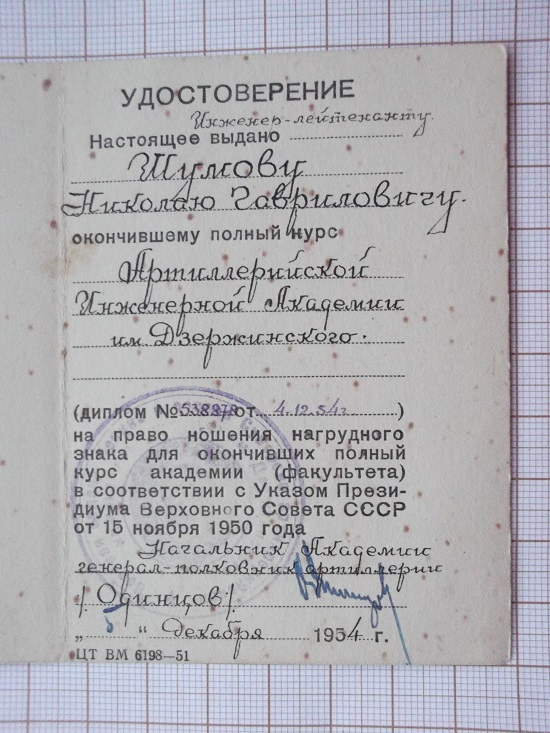 УДОСТОВЕРЕНИЕ
Инженер-лейтенанту
Настоящее выдано
Шумову
Николаю Гавриловичу.
окончившему полный курс
Артиллерийской
Инженерной Академии
им Дзержинского.
(диплом № 538878 от 4.12.54г )
на право ношения нагрудного
знака для окончивших полный
курс академии (факультета)
в соответствии с Указом Прези-
диума Верховного Совета СССР
от 15 ноября 1950 года
Начальник Академии
генерал-полковник артиллерии
/Одинцов/
„ 5 “ декабря 1954 г.
ЦТ ВМ 6198—51